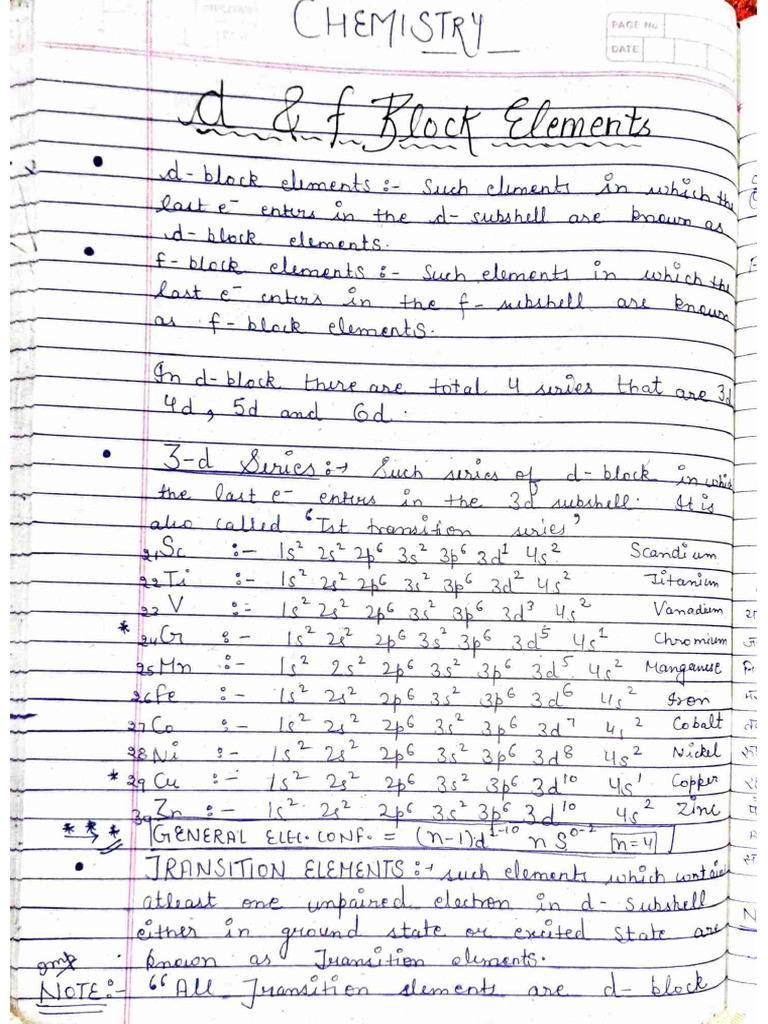 CHEMISTRY
PAGE No
DATE
d & f Block Elements
d-block elements :- Such elements in which the
last e⁻ enters in the d-subshell are known as
d-block elements.
f-block elements :- Such elements in which the
last e⁻ enters in the f-subshell are known
as f-block elements.
In d-block there are total 4 series that are 3d
4d, 5d and 6d.
3-d Series :→ Such series of d-block in which
the last e⁻ enters in the 3d subshell. It is
also called "Ist transition series"
21Sc :- 1s² 2s² 2p⁶ 3s² 3p⁶ 3d¹ 4s² Scandium
22Ti :- 1s² 2s² 2p⁶ 3s² 3p⁶ 3d² 4s² Titanium
23V :- 1s² 2s² 2p⁶ 3s² 3p⁶ 3d³ 4s² Vanadium
* 24Cr :- 1s² 2s² 2p⁶ 3s² 3p⁶ 3d⁵ 4s¹ Chromium
25Mn :- 1s² 2s² 2p⁶ 3s² 3p⁶ 3d⁵ 4s² Manganese
26Fe :- 1s² 2s² 2p⁶ 3s² 3p⁶ 3d⁶ 4s² Iron
27Co :- 1s² 2s² 2p⁶ 3s² 3p⁶ 3d⁷ 4s² Cobalt
28Ni :- 1s² 2s² 2p⁶ 3s² 3p⁶ 3d⁸ 4s² Nickel
* 29Cu :- 1s² 2s² 2p⁶ 3s² 3p⁶ 3d¹⁰ 4s¹ Copper
30Zn :- 1s² 2s² 2p⁶ 3s² 3p⁶ 3d¹⁰ 4s² Zinc
*** GENERAL ELEC. CONF. = (n-1)d¹⁻¹⁰ nS⁰⁻² n=4
TRANSITION ELEMENTS :→ such elements which contain
atleast one unpaired electron in d-subshell
either in ground state or excited state are
imp known as Transition elements.
NOTE :- "All Transition elements are d-block